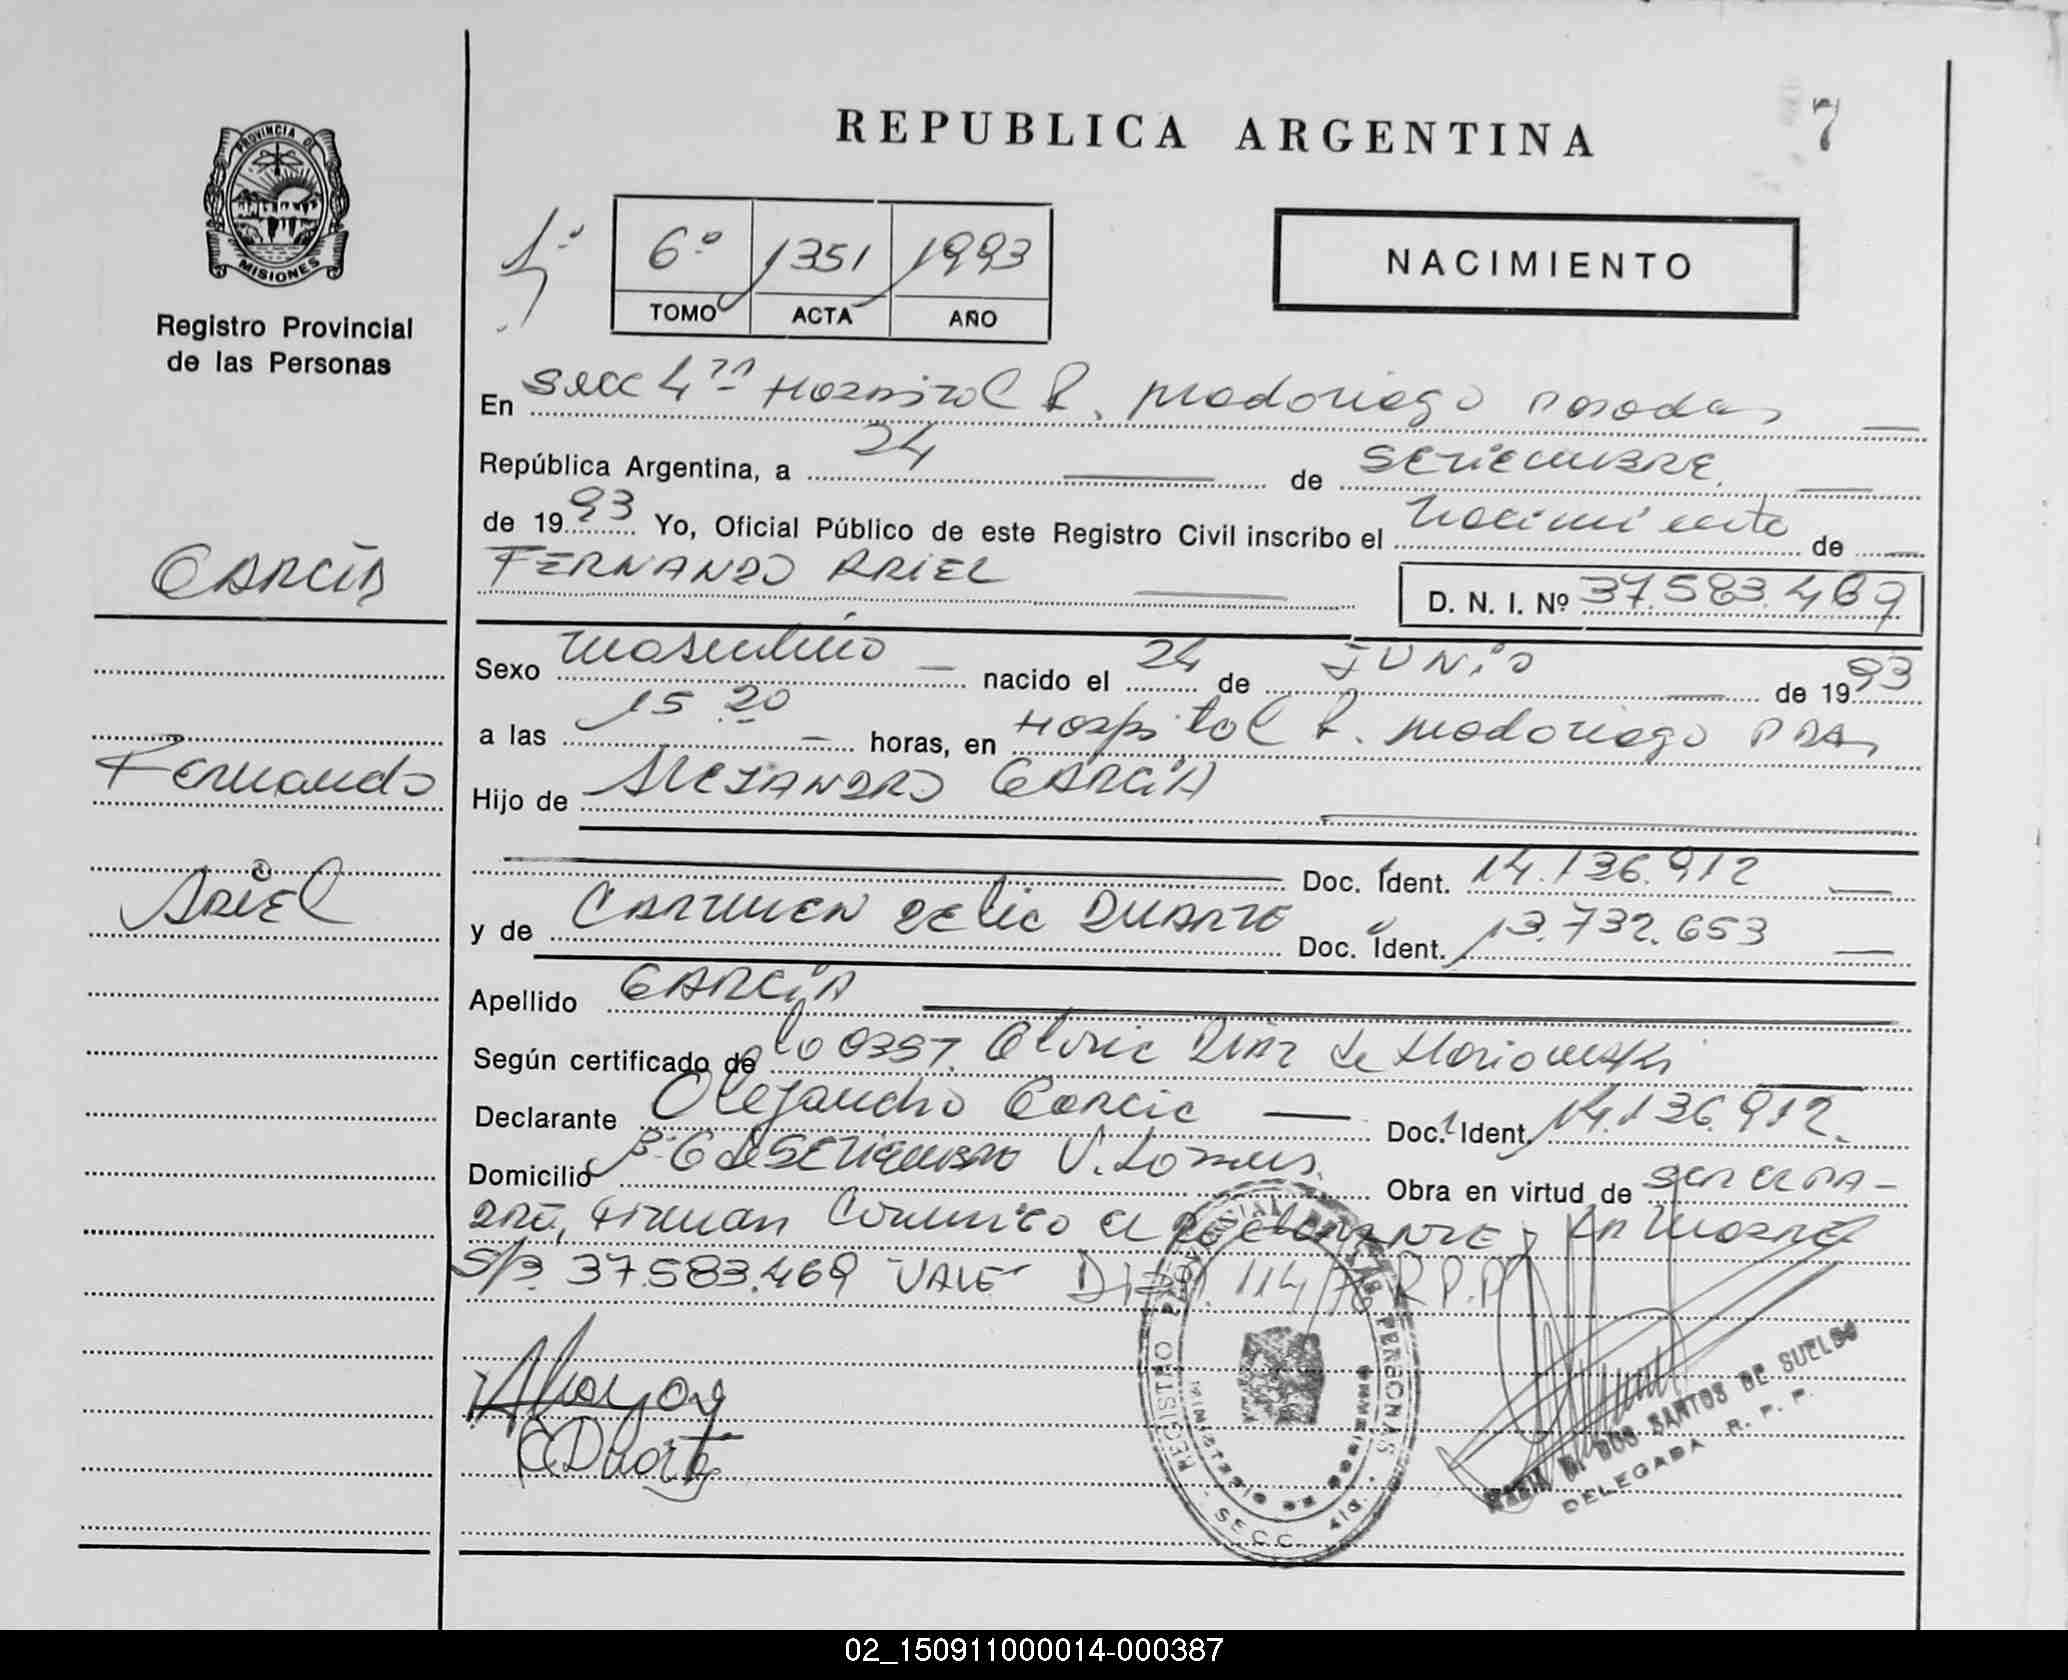 REPUBLICA ARGENTINA
7
PROVINCIA DE
MISIONES
Registro Provincial
de las Personas
1º
6º 1351 1993
TOMO ACTA AÑO
NACIMIENTO
En Secc 4ta Hospital R. Madariaga Posadas
República Argentina, a 24 de SETIEMBRE
de 1993 Yo, Oficial Público de este Registro Civil inscribo el nacimiento de
GARCÍA
FERNANDO ARIEL
D. N. I. Nº 37.583.469
Sexo masculino nacido el 24 de JUNIO de 1993
a las 15 20 horas, en Hospital R. Madariaga PDAS
Fernando
Hijo de ALEJANDRO GARCÍA
Doc. Ident. 14.136.912
ARIEL
y de CARMEN DELIA DUARTE Doc. Ident. 13.732.653
Apellido GARCÍA
Según certificado de Gloria DIAZ de
Declarante Alejandro Garcia Doc. Ident. 14.136.912.
Domicilio Bº 6 de SETIEMBRE V. Obra en virtud de SER EL PA-
DRE, FIRMAN Conmigo el DECLARANTE y LA MADRE
S/B. 37.583.469 "VALE" Disp. 114/ R.P.P
CDuarte
REGISTRO PROVINCIAL DE LAS PERSONAS
SECC. 4
DOS SANTOS DE SUELDO
DELEGADA R. P. P.
02_150911000014-000387